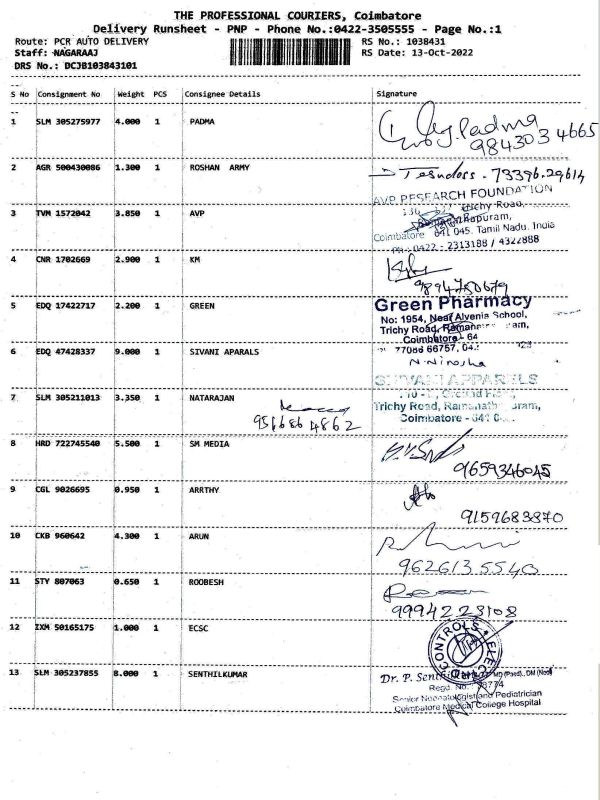 THE PROFESSIONAL COURIERS, Coimbatore
Delivery Runsheet - PNP - Phone No.:0422-3505555 - Page No.:1
Route: PCR AUTO DELIVERY RS No.: 1038431
Staff: NAGARAAJ RS Date: 13-Oct-2022
DRS No.: DCJB103843101
S No Consignment No Weight PCS Consignee Details Signature
1 SLM 305275977 4.000 1 PADMA
J.Padma
9843034665
2 AGR 500430086 1.300 1 ROSHAN ARMY
73396.29614
AVP RESEARCH FOUNDATION
Trichy Road,
3 TVM 1572042 3.850 1 AVP
Coimbatore 641 045. Tamil Nadu. India
Ph : 0422 - 2313188 / 4322888
4 CNR 1702669 2.900 1 KM
9894750679
Green Pharmacy
5 EDQ 17422717 2.200 1 GREEN
No: 1954, Near Alvenia School,
Trichy Road,
Coimbatore - 64
77086 66757,
6 EDQ 47428337 9.000 1 SIVANI APARALS
N. Nirosha
SHIVANI APPARELS
7 SLM 305211013 3.350 1 NATARAJAN
Trichy Road,
9566864862
Coimbatore - 641 0
8 HRD 722745540 5.500 1 SM MEDIA
9659346045
9 CGL 9026695 0.950 1 ARRTHY
9159683870
10 CKB 960642 4.300 1 ARUN
9626135540
11 STY 807063 0.650 1 ROOBESH
9994223108
12 IXM 50165175 1.000 1 ECSC
CONTROLS
13 SLM 305237855 8.000 1 SENTHILKUMAR
Dr. P.
Regd. No.
Senior Neonatologist and Pediatrician
Coimbatore Medical College Hospital